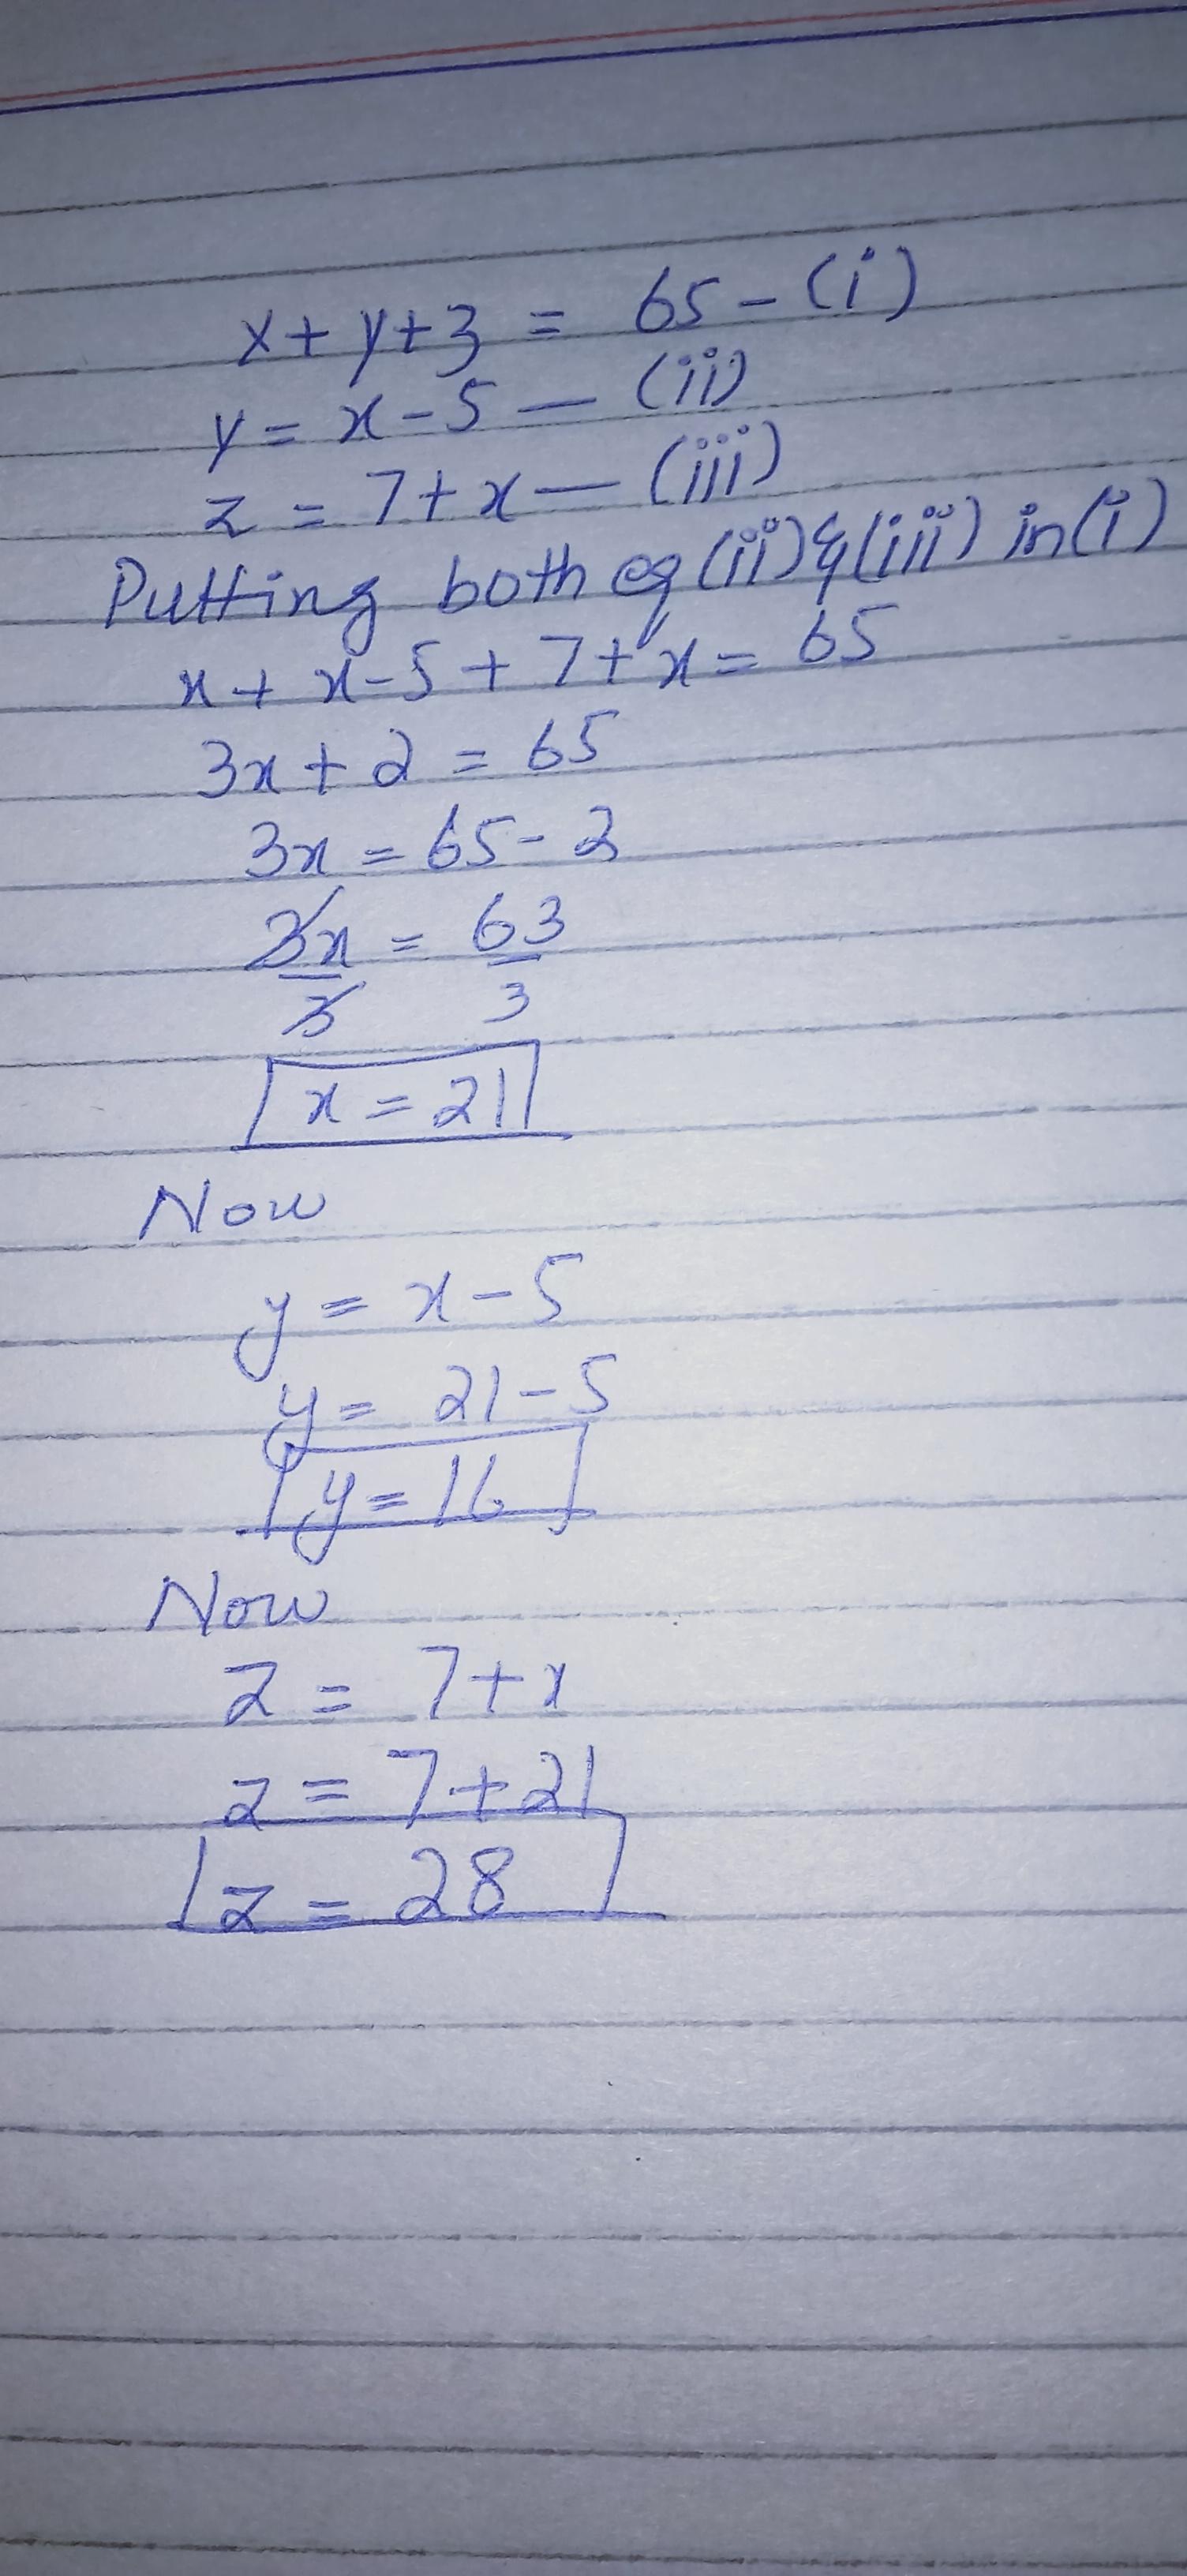 x + y + 3 = 65 - (i)
y = x - 5 — (ii)
z = 7 + x — (iii)
Putting both eq (ii) & (iii) in (i)
x + x - 5 + 7 + x = 65
3x + 2 = 65
3x = 65 - 2
3x = 63
3 3
x = 21
Now
y = x - 5
y = 21 - 5
y = 16
Now
z = 7 + x
z = 7 + 21
z = 28